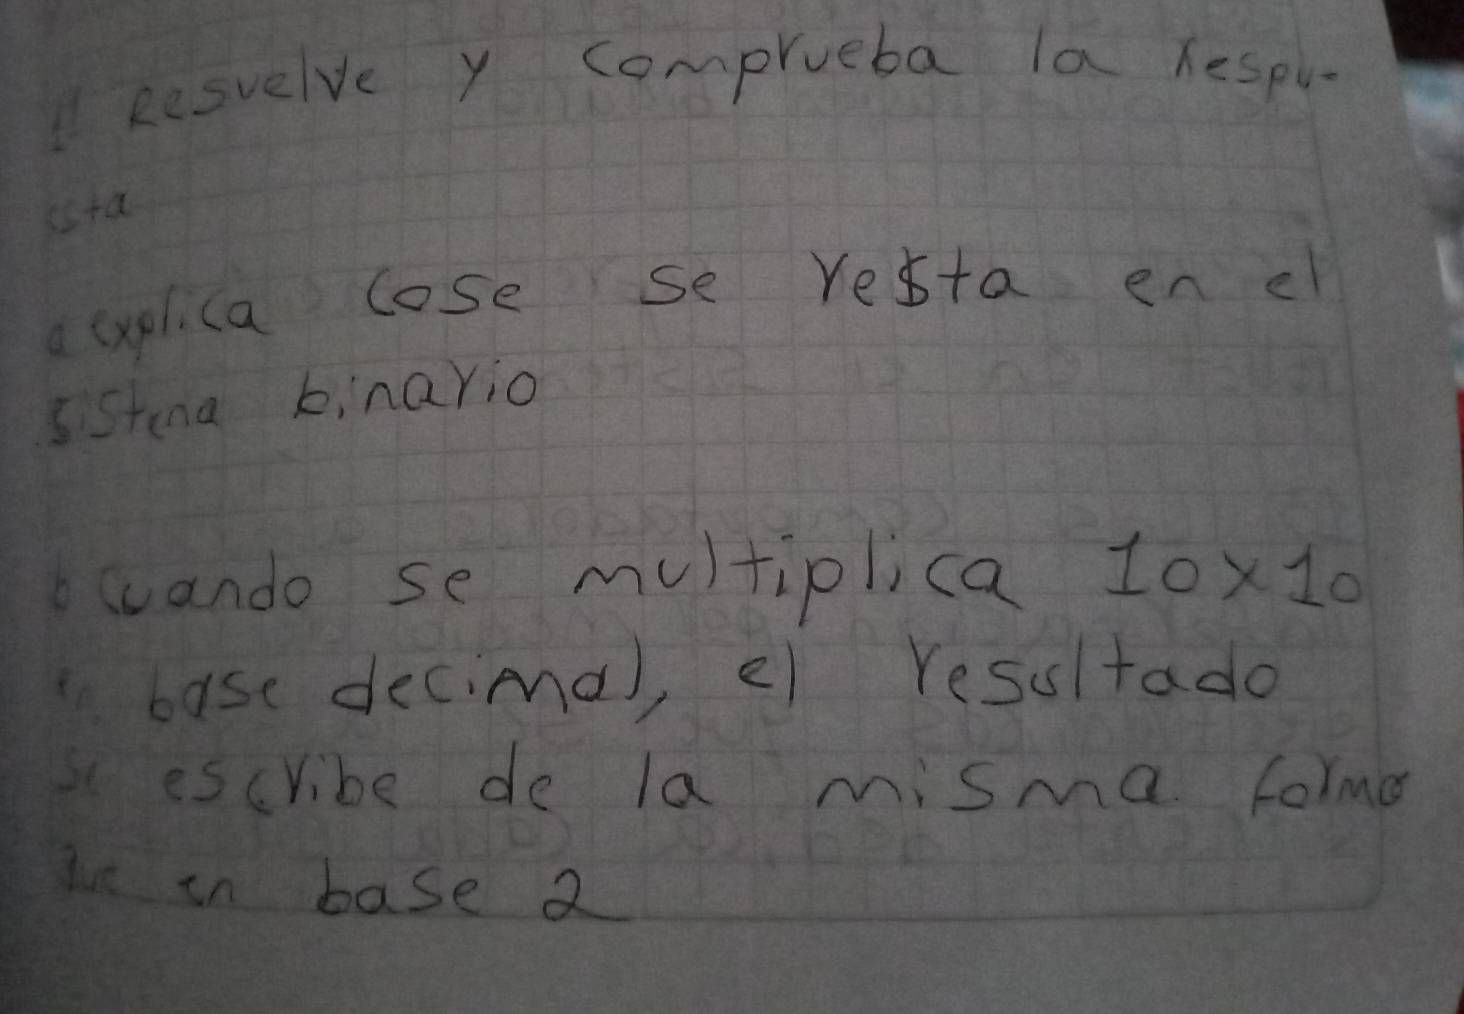 1! Resuelve y comprueba la respu-
esta
a explica cose se resta en el
sistena binario
b cuando se multiplica 10x10
en base decimal, el resultado
se escribe de la misma forma
que en base 2